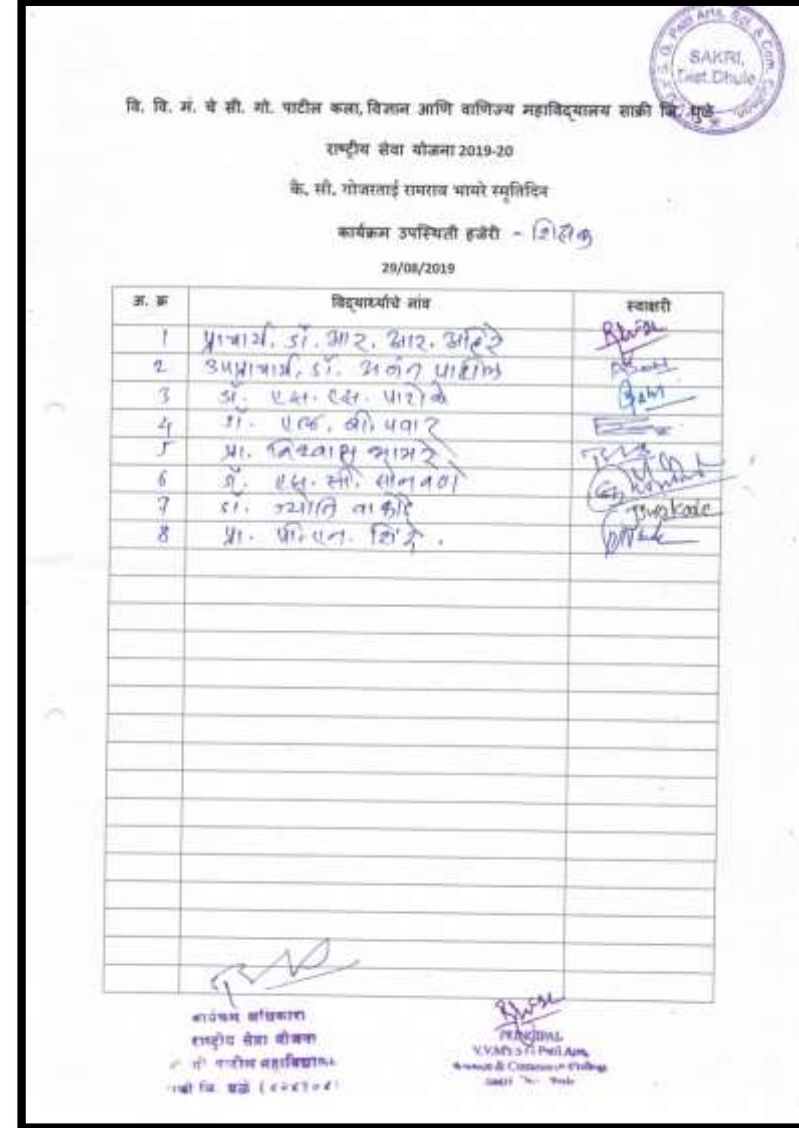 SAKRI,
Dist.Dhule
वि. वि. मं. चे सी. गो. पाटील कला, विज्ञान आणि वाणिज्य महाविद्यालय साक्री जि. धुळे
राष्ट्रीय सेवा योजना 2019-20
कै. सौ. गोजरताई रामराव भामरे स्मृतिदिन
कार्यक्रम उपस्थिती हजेरी - शिक्षक
29/08/2019
अ. क्र विद्यार्थ्याचे नांव स्वाक्षरी
1 प्राचार्य. डॉ. आर. आर. अहिरे
2 उपप्राचार्य. डॉ. अनंत पाटील
3 डॉ. एस. एस. पाटोळे
4 डॉ. एल. बी. पवार
5 प्रा. भामरे
6 डॉ. एस. सी. सोनवणे
7 डॉ. ज्योति वाकोडे
8 प्रा. पी. एन. शिंदे.
कार्यक्रम अधिकारी
राष्ट्रीय सेवा योजना
पाटील महाविद्यालय
PRINCIPAL
V.V.M's S G Patil Arts,
Science & Commerce College